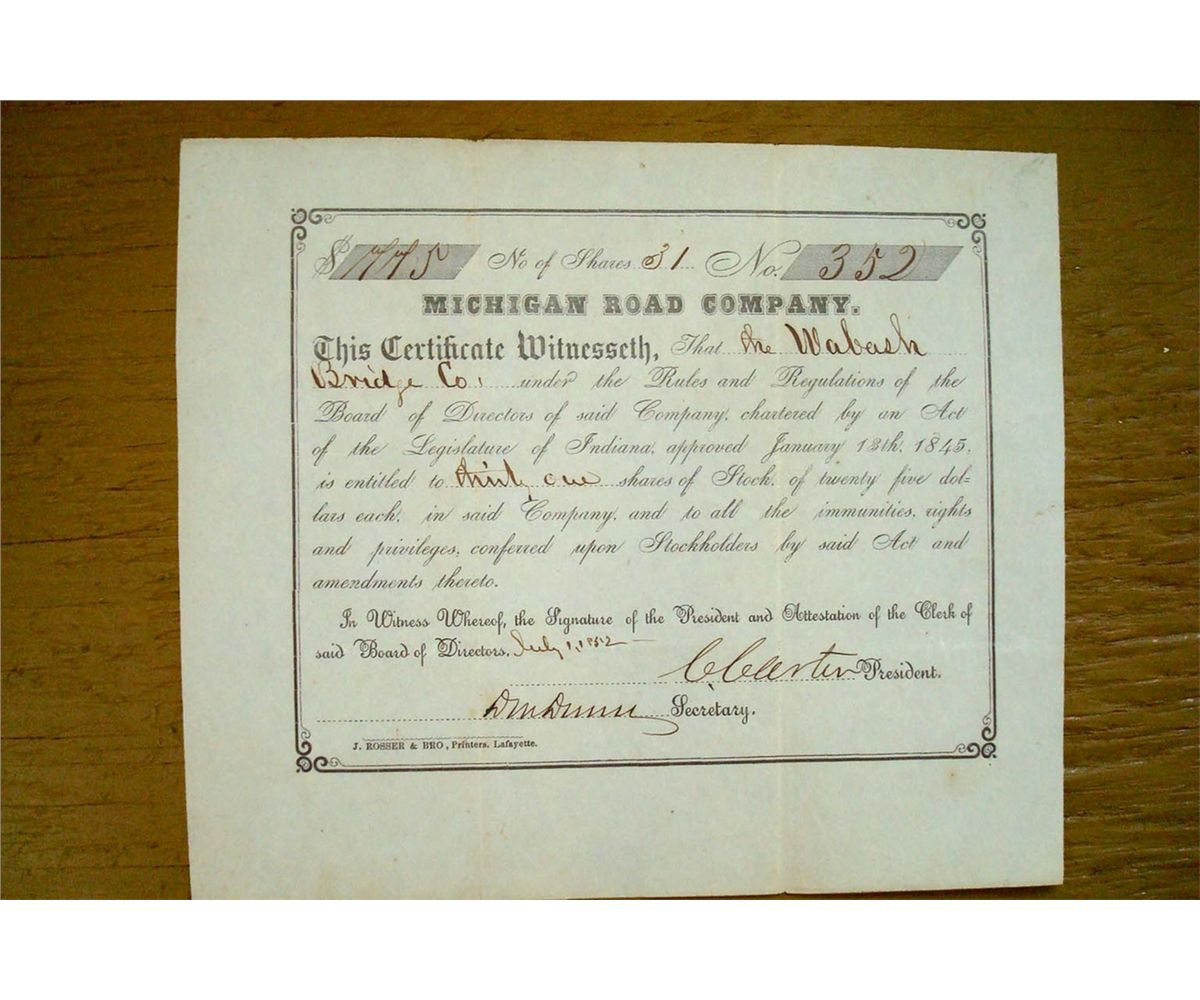 $ 775 No of Shares 31 No. 352
MICHIGAN ROAD COMPANY.
This Certificate Witnesseth, That the Wabash
Bridge Co, under the Rules and Regulations of the
Board of Directors of said Company, chartered by an Act
of the Legislature of Indiana, approved January 13th, 1845,
is entitled to thirty one shares of Stock, of twenty five dol-
lars each, in said Company, and to all the immunities, rights
and privileges, conferred upon Stockholders by said Act and
amendments thereto.
In Witness Whereof, the Signature of the President and Attestation of the Clerk of
said Board of Directors, July 1, 1852
President.
Secretary.
J. ROSSER & BRO, Printers, Lafayette.